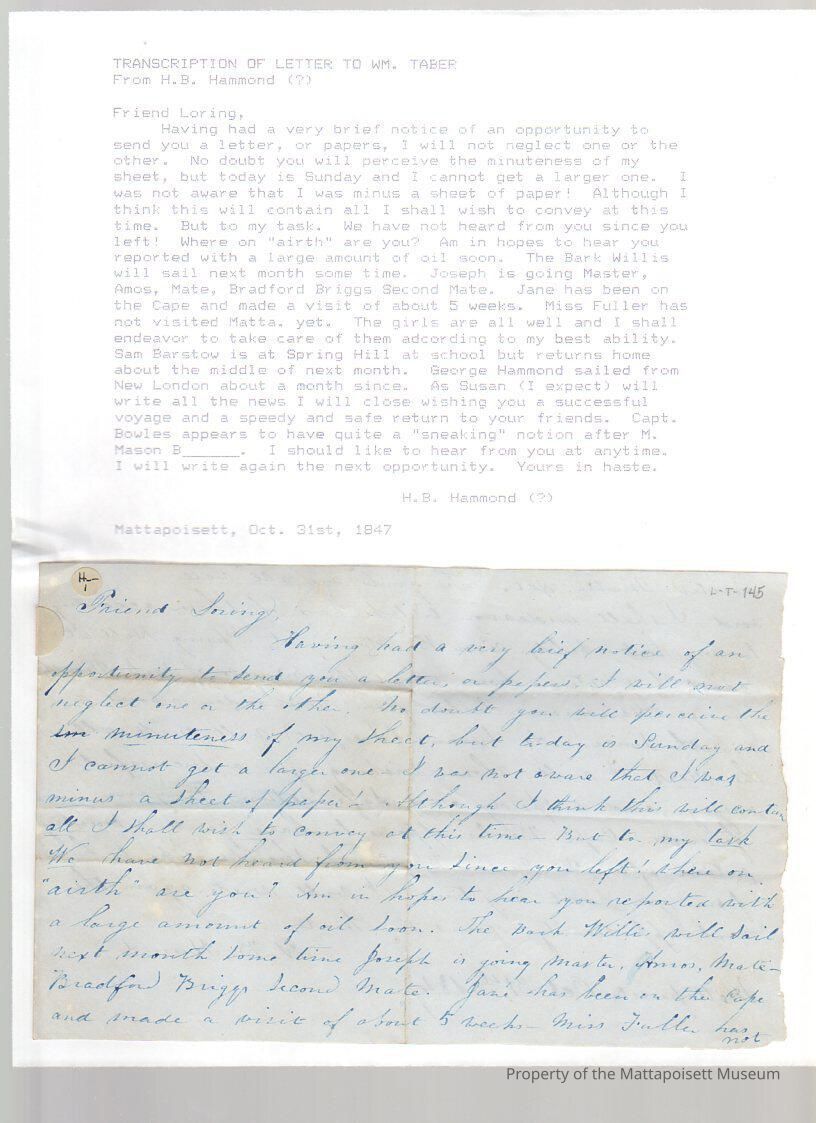 TRANSCRIPTION OF LETTER TO WM. TABER
From H.B. Hammond (?)
Friend Loring,
Having had a very brief notice of an opportunity to
send you a letter, or papers, I will not neglect one or the
other. No doubt you will perceive the minuteness of my
sheet, but today is Sunday and I cannot get a larger one. I
was not aware that I was minus a sheet of paper! Although I
think this will contain all I shall wish to convey at this
time. But to my task. We have not heard from you since you
left! Where on "airth" are you? Am in hopes to hear you
reported with a large amount of oil soon. The Bark Willis
will sail next month some time. Joseph is going Master,
Amos, Mate, Bradford Briggs Second Mate. Jane has been on
the Cape and made a visit of about 5 weeks. Miss Fuller has
not visited Matta. yet. The girls are all well and I shall
endeavor to take care of them adcording to my best ability.
Sam Barstow is at Spring Hill at school but returns home
about the middle of next month. George Hammond sailed from
New London about a month since. As Susan (I expect) will
write all the news I will close wishing you a successful
voyage and a speedy and safe return to your friends. Capt.
Bowles appears to have quite a "sneaking" notion after M.
Mason B______. I should like to hear from you at anytime.
I will write again the next opportunity. Yours in haste.
H.B. Hammond (?)
Mattapoisett, Oct. 31st, 1847
H-1
L-T-145
Friend Loring,
Having had a very brief notice of an
opportunity to send you a letter, or papers, I will not
neglect one or the other. No doubt you will perceive the
minuteness of my sheet, but to day is Sunday and
I cannot get a larger one - I was not aware that I was
minus a sheet of paper! - Although I think this will contain
all I shall wish to convey at this time - But to my task
We have not heard from you since you left! Where on
"airth" are you? Am in hopes to hear you reported with
a large amount of oil soon. The Bark Willis will sail
next month some time Joseph is going Master, Amos, Mate -
Bradford Briggs Second Mate. Jane has been on the Cape
and made a visit of about 5 weeks - Miss Fuller has
not
Property of the Mattapoisett Museum